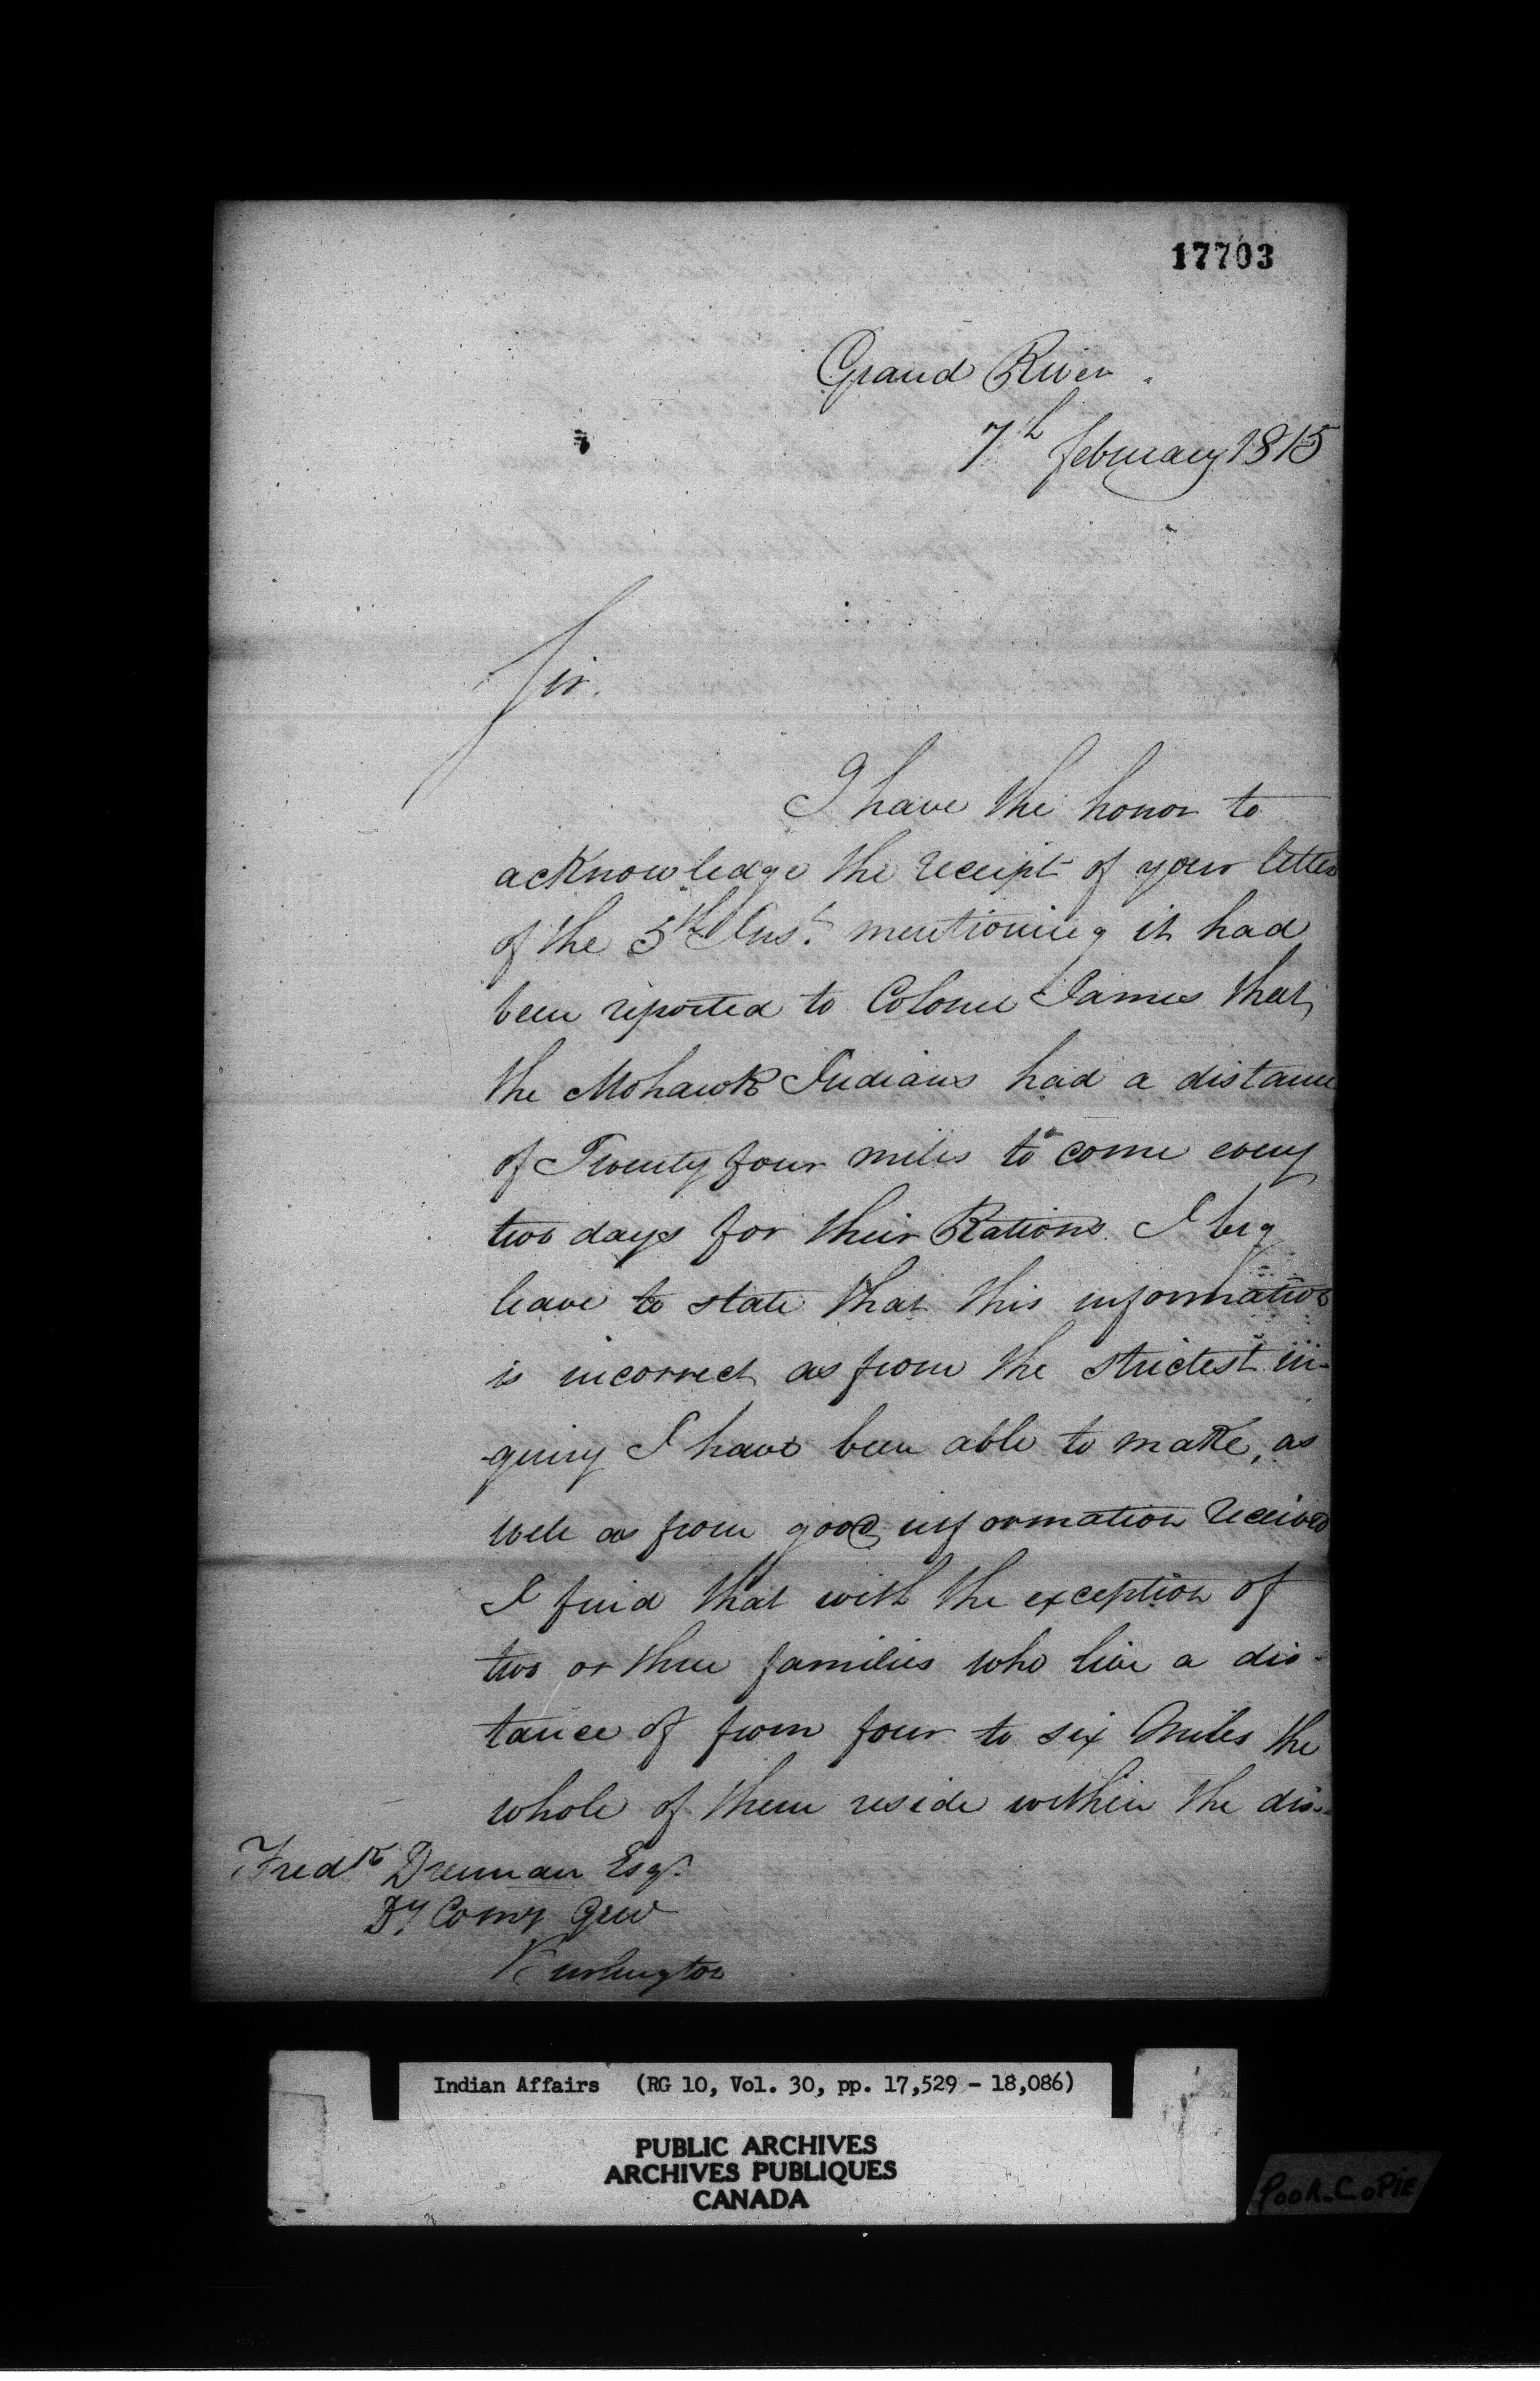 17703
Grand River.
7th February 1815
Sir.
I have the honor to
acknowledge the receipt of your letter
of the 5th Inst. mentioning it had
been reported to Colonel James that
the Mohawk Indians had a distance
of Twenty four miles to come every
two days for their Rations. I beg
leave to state that this information
is incorrect as from the strictest in-
-quiry I have been able to make, as
well as from good information received
I find that with the exception of
two or three families who live a dis-
tance of from four to six Miles the
whole of them reside within the dis-
Fredk Drennan Esqr.
Dy Comy Genl
Burlington
Indian Affairs (RG 10, Vol. 30, pp. 17,529 - 18,086)
PUBLIC ARCHIVES
ARCHIVES PUBLIQUES
CANADA
POOR COPIE